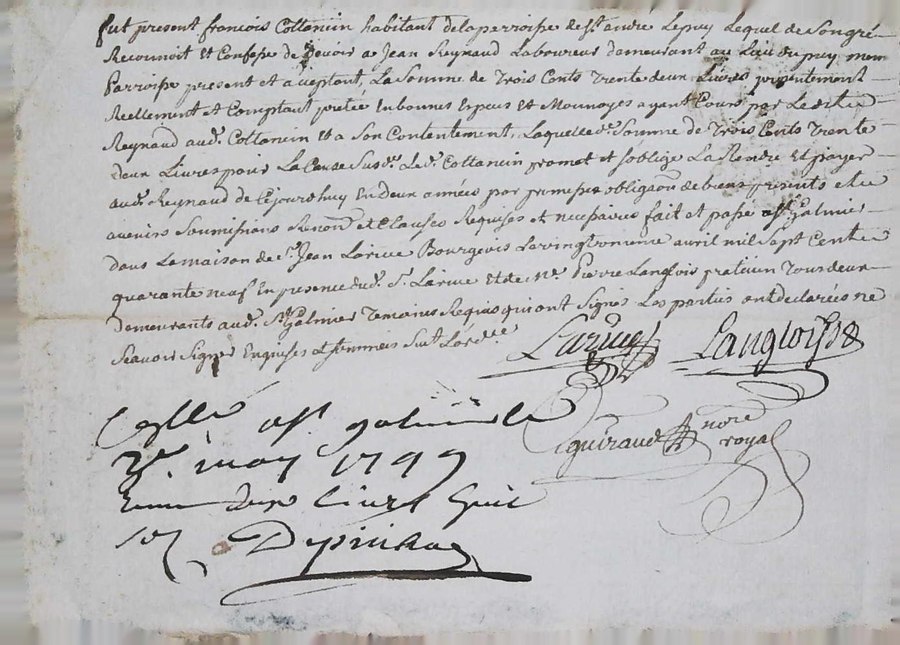 fut present francois Cottancin habitant dela parroisse de St. andré Lepuy Lequel de Son gré
Reconnoit et Confesse de Devoir a Jean Reynaud Laboureur demeurant au Lieu du puy mem
Parroisse present et acceptant, La Somme de Trois Cents Trente deux Livres presentement
Reellement et Comptant pretée En bonnes Especes et Monnoyes ayant Cours par Ledit
Reynaud aud. Cottancin Et a Son Contentement, Laquelle de. Somme de Trois Cents Trente
deux Livres pour La Cause Susd. Led. Cottancin promet et s'oblige La Rendre Et payer
aud. Reynaud de Cejourdhuy En deux années par promesse obligaon de biens presents et a
avenirs Soumissions Renonon et Clauses Requises et necessaires fait et passé a St. Galmier
dans La maison de Sr. Jean Larive Bourgeois Le vingt avril mil Sept Cents
quarante neuf En presence dud. Sr. Larive Et de Me. Pierre Langlois praticien Tous deux
demeurants aud. St. Galmier Temoins Requis qui ont Signé Les parties ont declarées ne
Scavoir Signer Enquises et Sommées Suivt. Lord.ce
Larive Langlois
guiraud nore royal
Collé a St galmier le
3e. may 1749
livre huit